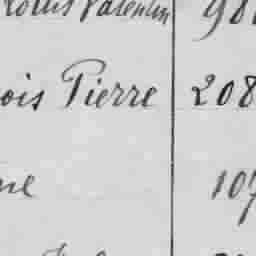 Louis Valentin 98
ois Pierre 208
ne 107